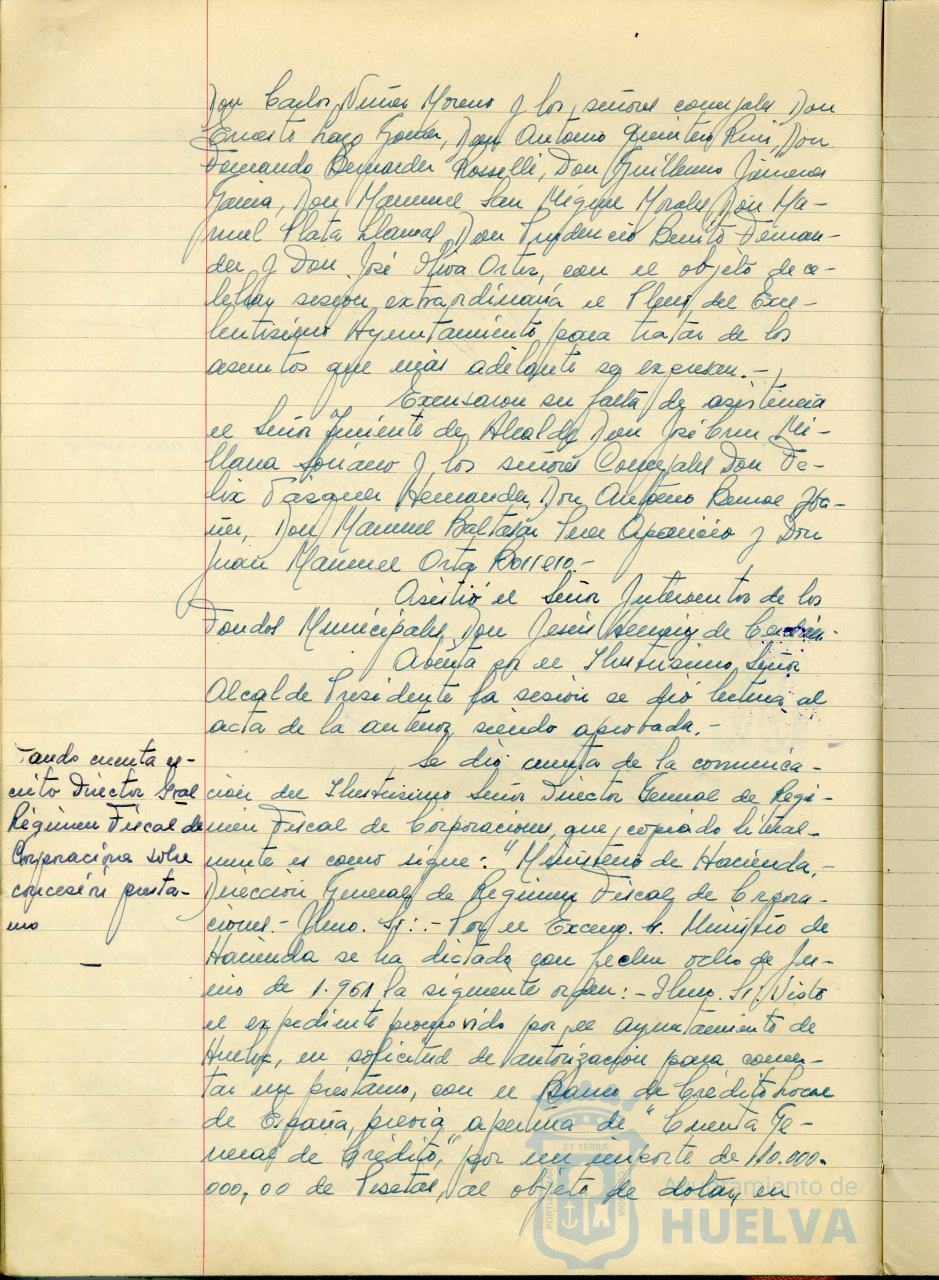 Don Carlos Núñez Moreno y los señores concejales Don
Ernesto Lazo Gómez, Don Antonio Quintero Ruiz, Don
Fernando Bernardez Rosselli, Don Guillermo Jimenez
Garcia, Don Manuel San Miguel Morales, Don Ma-
nuel Plata Llamas, Don Prudencio Benito Fernan-
dez y Don José Oliva Ortiz, con el objeto de ce-
lebrar sesion extraordinaria el Pleno del Exce-
lentisimo Ayuntamiento para tratar de los
asuntos que más adelante se expresan.-
Excusaron su falta de asistencia
el Señor Teniente de Alcalde Don José Cruz Mi-
llana Soriano y los señores Concejales Don Fe-
lix Vásquez Hernandez, Don Antonio
Don Manuel Baltasar Aparicio y Don
Juan Manuel Orta Borrero.-
Asistió el Señor Interventor de los
Fondos Municipales Don Jesús de
Abierta por el Ilustrisimo Señor
Alcalde Presidente la sesión se dió lectura al
acta de la anterior siendo aprobada.-
Dando cuenta es-
crito Director Gral
Régimen Fiscal de
Corporaciones sobre
concesión presta-
mo
Se dió cuenta de la comunica-
ción del Ilustrisimo Señor Director General de Regi-
men Fiscal de Corporaciones, que copiado literal-
mente es como sigue: "Ministerio de Hacienda.-
Dirección General de Regimen Fiscal de Corpora-
ciones.- Ilmo. Sr: .- Por el Excmo. Sr. Ministro de
Hacienda se ha dictado con fecha ocho de Ju-
nio de 1.961 la siguiente orden: - Ilmo. Sr: Visto
el expediente promovido por el Ayuntamiento de
Huelva, en solicitud de autorización para concer-
tar un préstamo, con el Banco de Crédito Local
de España, previa apertura de "Cuenta Ge-
neral de Crédito," por un importe de 110.000.
000,00 de Pesetas, al objeto de dotar, en
ET TERRAE
Ayuntamiento de
HUELVA